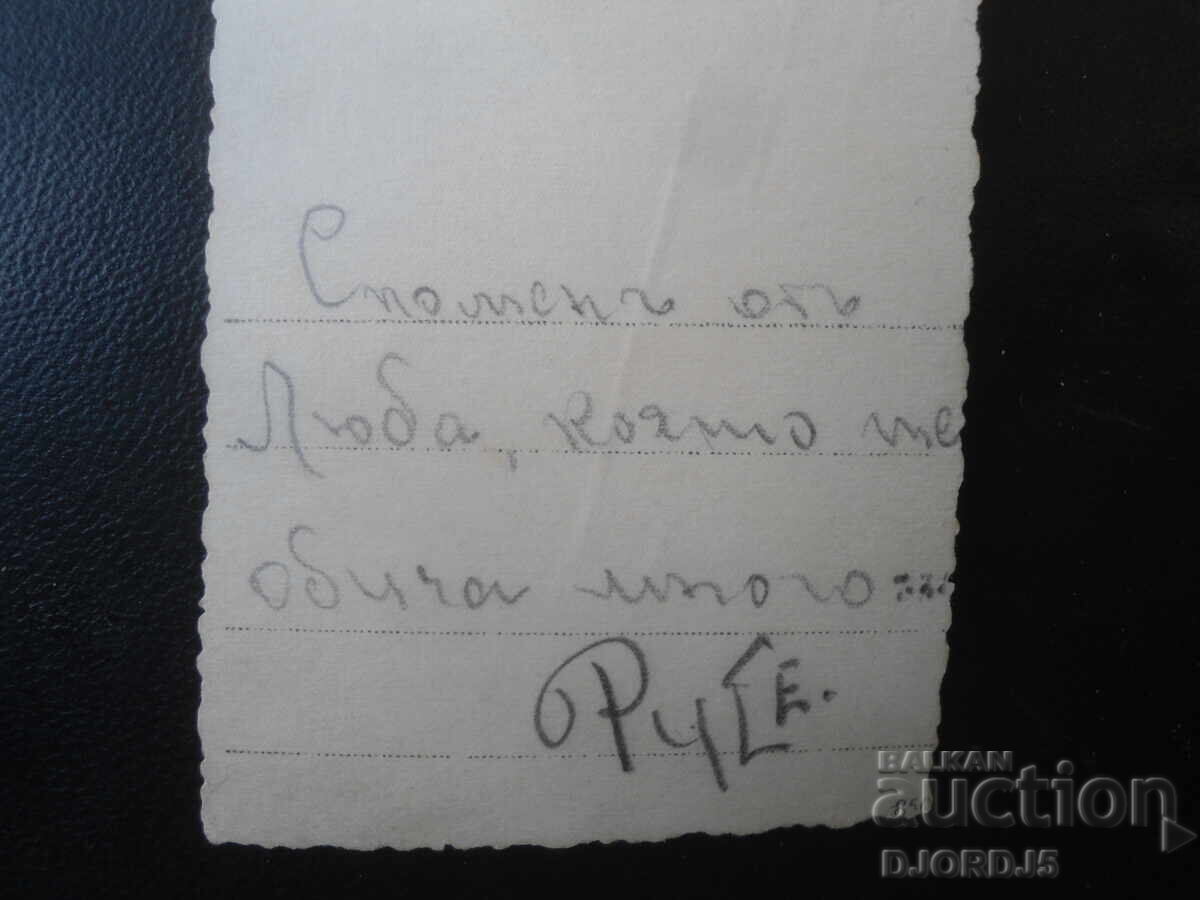 Споменъ отъ
Люба, която те
обича много
РУСЕ.
850
BALKAN
auction
DJORDJ5